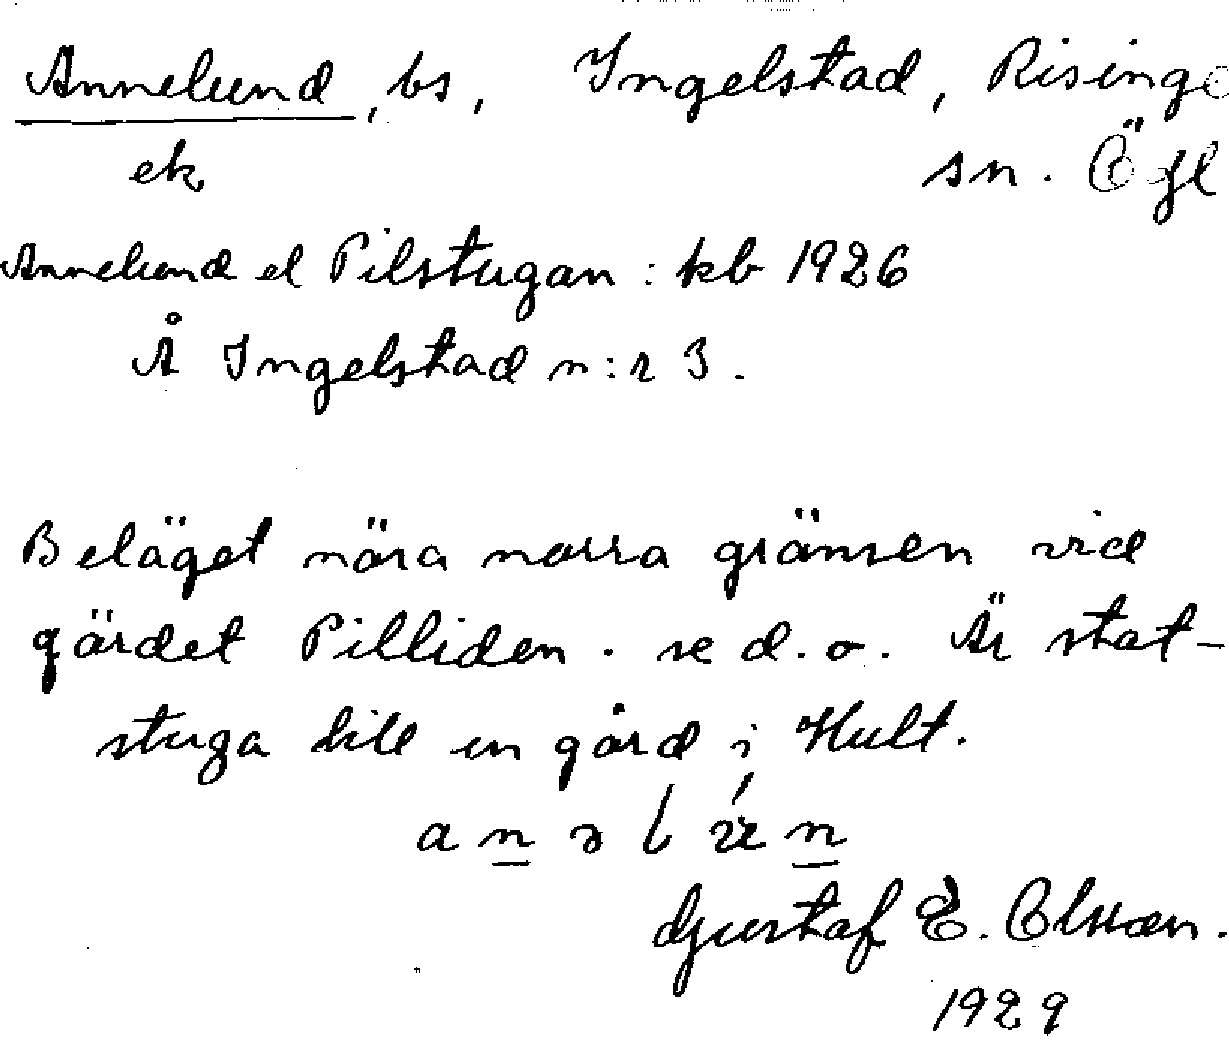 Annelund, bs, Ingelstad, Risinge
ek sn. Ögl
Annelund el Pilstugan : kb 1926
Å Ingelstad n:r 3.
Beläget nära norra gränsen vid
gärdet Pilliden. se d.o. Är stat-
stuga till en gård i Hult.
Gustaf E. Olsson.
1929